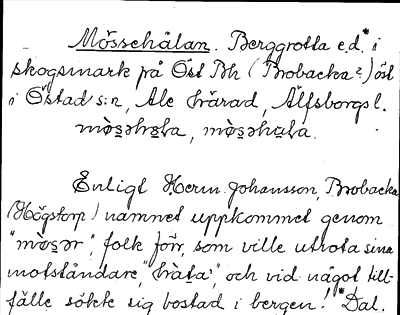 Mössehålan. Berggrotta e.d.* i
skogsmark på Öst Bh (Brobacka?) öst
i Östad s:n, Ale härad, Älfsborgs l.
Enligt Herm. Johansson, Brobacka
(Högstorp) namnet uppkommet genom
folk förr, som ville utrota sina
motståndare, och vid något till-
fälle sökte sig bostad i bergen. *Dal.